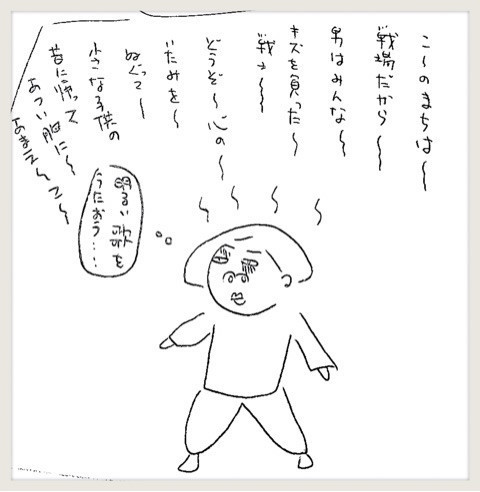 こ〜のまちは〜
戦場だから〜
男はみんな〜
キズを負った〜
戦士〜
どうぞ〜心の〜
いたみを〜
ぬぐって〜
小さな子供の
昔に帰って
あつい胸に〜
あまえ〜て〜
明るい歌を
うたおう……